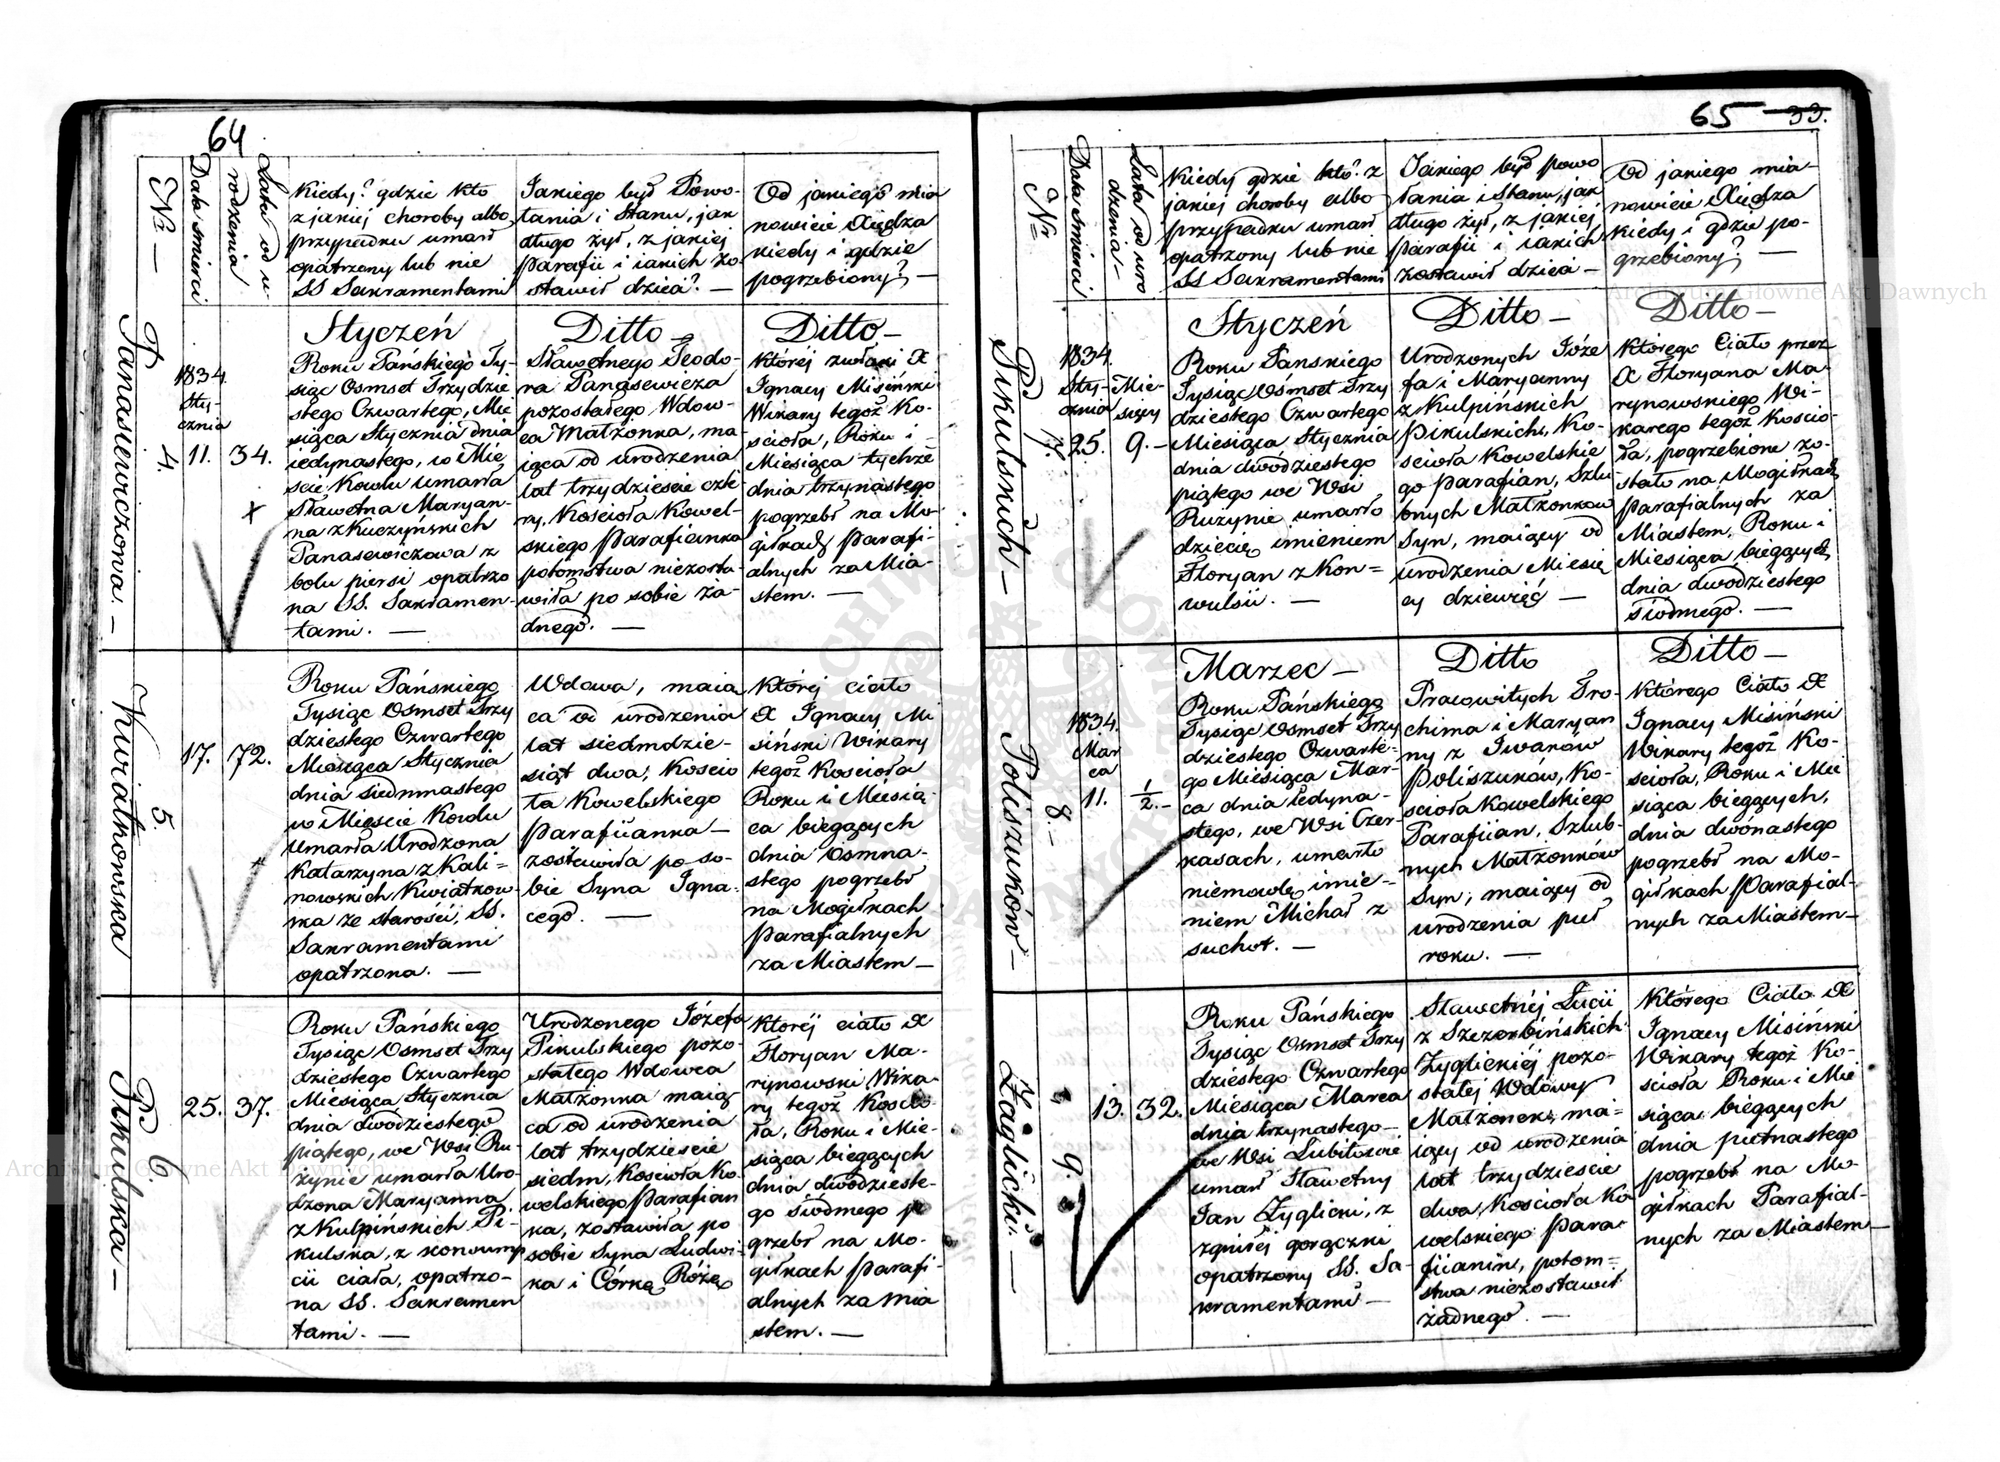 64
№ —
Data śmierci
Lata od u
rodzenia
Kiedy? gdzie kto
z jakiej choroby albo
przypadku umarł
opatrzony lub nie
SS Sakramentami
Jakiego był Powo-
łania i Stanu, jak
długo żył, z jakiej
parafii i iakich zo-
stawił dzieci? —
Od jakiego mia
nowicie Xiędza
kiedy i gdzie
pogrzebiony? —
Panasewiczowa. —
4.
1834.
Sty-
cznia
11.
34.
Styczeń
Roku Pańskiego Ty-
siąc Osmset Trzydzie
stego Czwartego, Mie
siąca Stycznia dnia
iedynastego, w Mie
ście Kowlu umarła
Sławetna Maryan-
na z Kuczyńskich
Panasewiczowa z
bolu piersi opatrzo
na SS. Sakramen-
tami. —
Ditto —
Sławetnego Teodo-
ra Panasewicza
pozostałego Wdow-
ca Małżonka, ma-
iąca od urodzenia
lat trzydzieście czte-
ry, Kościoła Kowel-
skiego Parafianka
potomstwa niezosta-
wiła po sobie ża-
dnego. —
Ditto —
Której zwłoki X
Ignacy Misiński
Wikary tegoż Ko-
ścioła, Roku i
Miesiąca tychże
dnia trzynastego
pogrzebł na Mo-
giłkach Parafi-
alnych za Mia-
stem. —
Kwiatkowska
5.
17.
72.
Roku Pańskiego
Tysiąc Osmset Trzy
dziestego Czwartego
Miesiąca Stycznia
dnia siedmnastego
w Mieście Kowlu
umarła Urodzona
Katarzyna z Kali=
nowskich Kwiatkow
ka ze starości, SS.
Sakramentami
opatrzona. —
Wdowa, maią
ca od urodzenia
lat siedmdzie-
siąt dwa, Koscio
ła Kowelskiego
parafiianka —
zostawiła po so-
bie Syna Igna-
cego. —
Której ciało
X Ignacy Mi
siński Wikary
tegoż Kościoła
Roku i Miesią-
ca bieżących
dnia Osmna-
stego pogrzebł
na Mogiłkach
Parafialnych
za Miastem —
Pikulska —
6.
25.
37.
Roku Pańskiego
Tysiąc Osmset Trzy
dziestego Czwartego
Miesiąca Stycznia
dnia dwódziestego
piątego, we Wsi Ru-
żynie umarła Uro-
dzona Maryanna
z Kulpińskich Pi-
kulska, z skonsump
cii ciała, opatrzo-
na SS. Sakramen
tami. —
Urodzonego Józefa
Pikulskiego pozo-
stałego Wdowca
Małżonka maią
ca od urodzenia
lat trzydzieście
siedm, Kościoła Ko-
welskiego Parafian
ka, zostawiła po
sobie Syna Ludwi-
ka i Córkę Różę
Któréj ciało X
Floryan Ma-
rynowski Wika-
ry tegoż Koscio-
ła, Roku i Mie-
siąca bieżących
dnia dwódzieste-
go siódmego po
grzebł na Mo-
giłkach Parafi-
alnych za Mia
stem. —
65 33.
Nr
Data śmierci
Lata od uro
dzenia —
Kiedy gdzie kto z
jakiej choroby albo
przypadku umarł
opatrzony lub nie
SS Sakramentami
Jakiego był powo
łania i stanu, jak
długo żył, z jakiej
parafii i iakich
zostawił dzieci —
Od jakiego mia-
nowicie Xiędza
kiedy i gdzie po-
grzebiony? —
Pikulskich —
7.
1834.
Sty-
cznia
25.
Mie-
sięcy
9. —
Styczeń
Roku Pańskiego
Tysiąc Osmset Trzy
dziestego Czwartego
Miesiąca Stycznia
dnia dwódziestego
piątego we Wsi
Rużynie umarło
dziecię imieniem
Floryan z Kon=
wulsii. —
Ditto —
Urodzonych Józe
fa i Maryanny
z Kulpińskich
Pikulskich, Ko-
ścioła Kowelskie
go Parafian, Szlu
bnych Małżonków
Syn, maiący od
urodzenia Miesię
cy dziewięć —
Ditto —
Którego Ciało przez
X Floryana Ma-
rynowskiego Wi-
karego tegoż Koscio-
ła, pogrzebione zo-
stało na Mogiłkach
Parafialnych za
Miastem, Roku i
Miesiąca bieżących,
dnia dwódziestego
siódmego. —
Poliszuków —
8 —
1834.
Mar
ca
11.
1/2. —
Marzec —
Roku Pańskiego
Tysiąc Osmset Trzy
dziestego Czwarte-
go Miesiąca Mar-
ca dnia Iedyna-
stego, we Wsi Czer-
kasach, umarło
niemowlę imie-
niem Michał z
suchot. —
Ditto
Pracowitych Tro-
chima i Maryan
ny z Iwanów
Poliszuków, Ko-
ścioła Kowelskiego
Parafiian, Szlub-
nych Małżonków
Syn, maiący od
urodzenia puł
roku. —
Ditto —
Którego Ciało X
Ignacy Misiński
Wikary tegoż Ko-
ścioła, Roku i Mie
siąca bieżących,
dnia dwónastego
pogrzebł na Mo-
giłkach Parafial-
nych za Miastem —
9.
13.
32.
Roku Pańskiego
Tysiąc Osmset Trzy
dziestego Czwartego
Miesiąca Marca
dnia trzynastego —
we Wsi Lubitowie
umarł Sławetny
Jan Żyglicki, z
zgniłej gorączki
opatrzony SS. Sa-
kramentami —
Sławetnéj Łucii
z Szczerbińskich
Żyglickiéj pozo-
stałej Wdowy
Małżonek, ma-
iący od urodzenia
lat trzydzieście
dwa, Kościoła Ko
welskiego Para-
fiianin, potom=
stwa niezostawił
żadnego. —
Którego Ciało X
Ignacy Misiński
Wikary tegoż Ko-
ścioła Roku i Mie
siąca bieżących
dnia piętnastego
pogrzebł na Mo-
giłkach Parafial-
nych za Miastem —
Archiwum Główne Akt Dawnych
Archiwum Główne Akt Dawnych